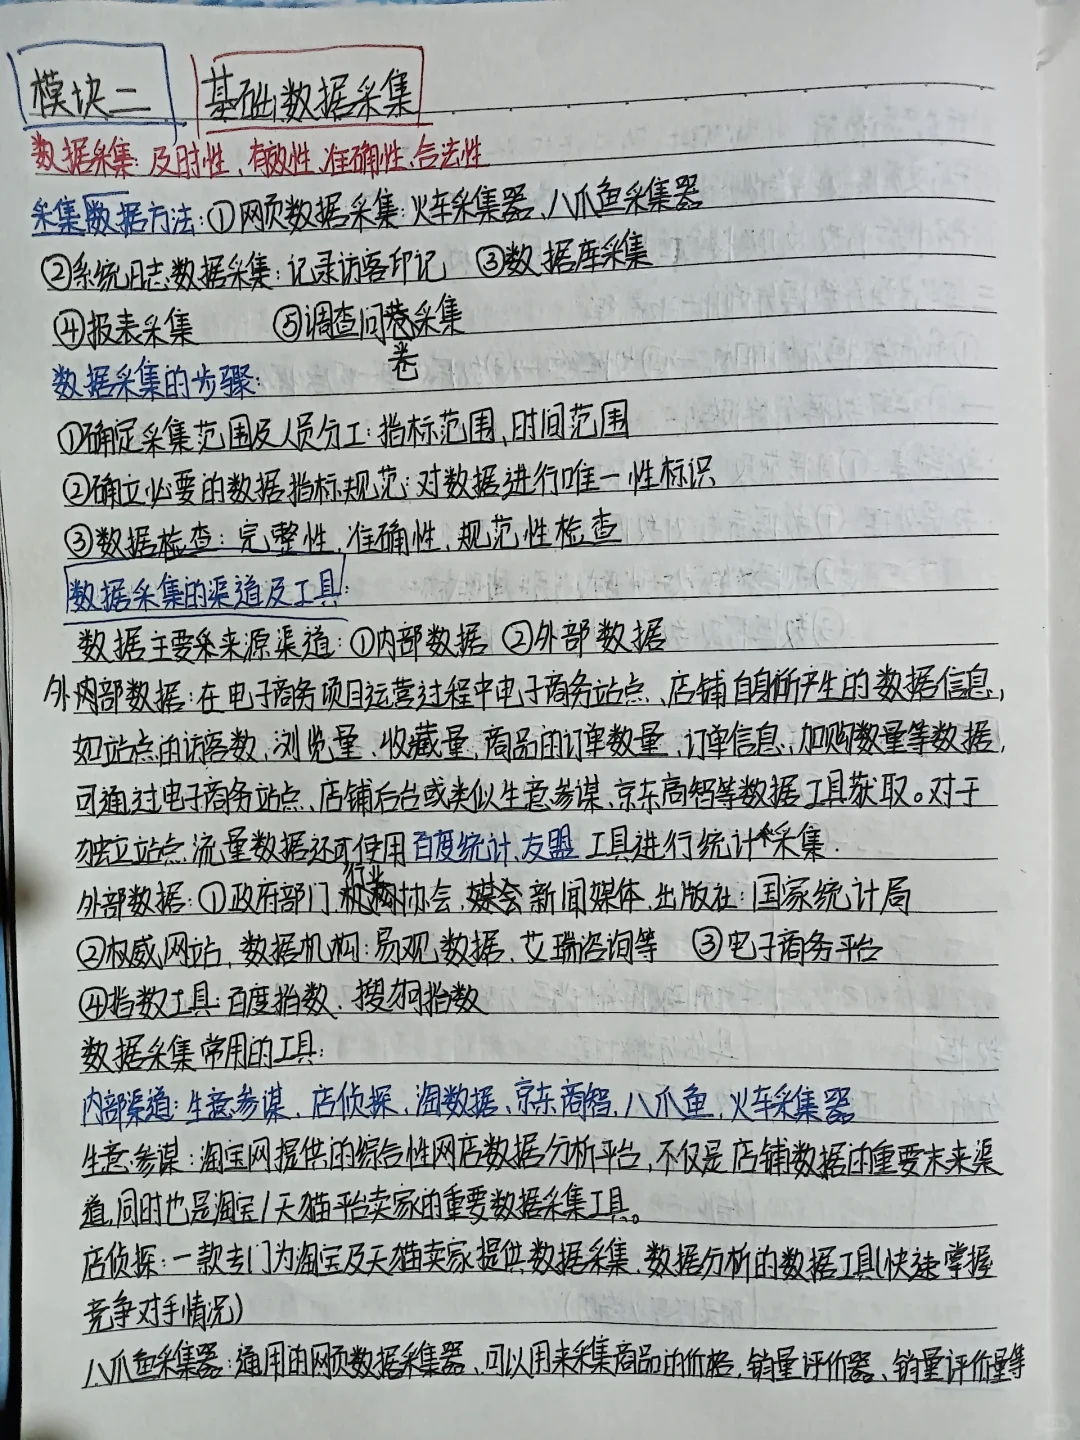 模块二 基础数据采集
数据采集: 及时性、有效性、准确性、合法性
采集数据方法:①网页数据采集:火车采集器、八爪鱼采集器
②系统日志数据采集:记录访客印记 ③数据库采集
④报表采集 ⑤调查问卷采集
卷
数据采集的步骤:
①确定采集范围及人员分工:指标范围、时间范围
②确立必要的数据指标规范:对数据进行唯一性标识
③数据检查:完整性、准确性、规范性检查
数据采集的渠道及工具:
数据主要采来源渠道:①内部数据 ②外部数据
外内部数据:在电子商务项目运营过程中电子商务站点、店铺自身所产生的数据信息,
如站点的访客数、浏览量、收藏量,商品的订单数量、订单信息、加购数量等数据,
可通过电子商务站点、店铺后台或类似生意参谋、京东商智等数据工具获取。对于
独立站点流量数据还可使用百度统计、友盟工具进行统计采集.
行业
外部数据:①政府部门、机构协会、媒会新闻媒体、出版社:国家统计局
②权威网站、数据机构:易观数据、艾瑞咨询等 ③电子商务平台
④指数工具:百度指数、搜狗指数
数据采集常用的工具:
内部渠道:生意参谋、店侦探、淘数据、京东商智、八爪鱼、火车采集器
生意参谋:淘宝网提供的综合性网店数据分析平台,不仅是店铺数据的重要末来渠
道,同时也是淘宝/天猫平台卖家的重要数据采集工具。
店侦探:一款专门为淘宝及天猫卖家提供数据采集、数据分析的数据工具(快速掌握
竞争对手情况)
八爪鱼采集器:通用的网页数据采集器、可以用来采集商品的价格,销量评价器、销量评价量等